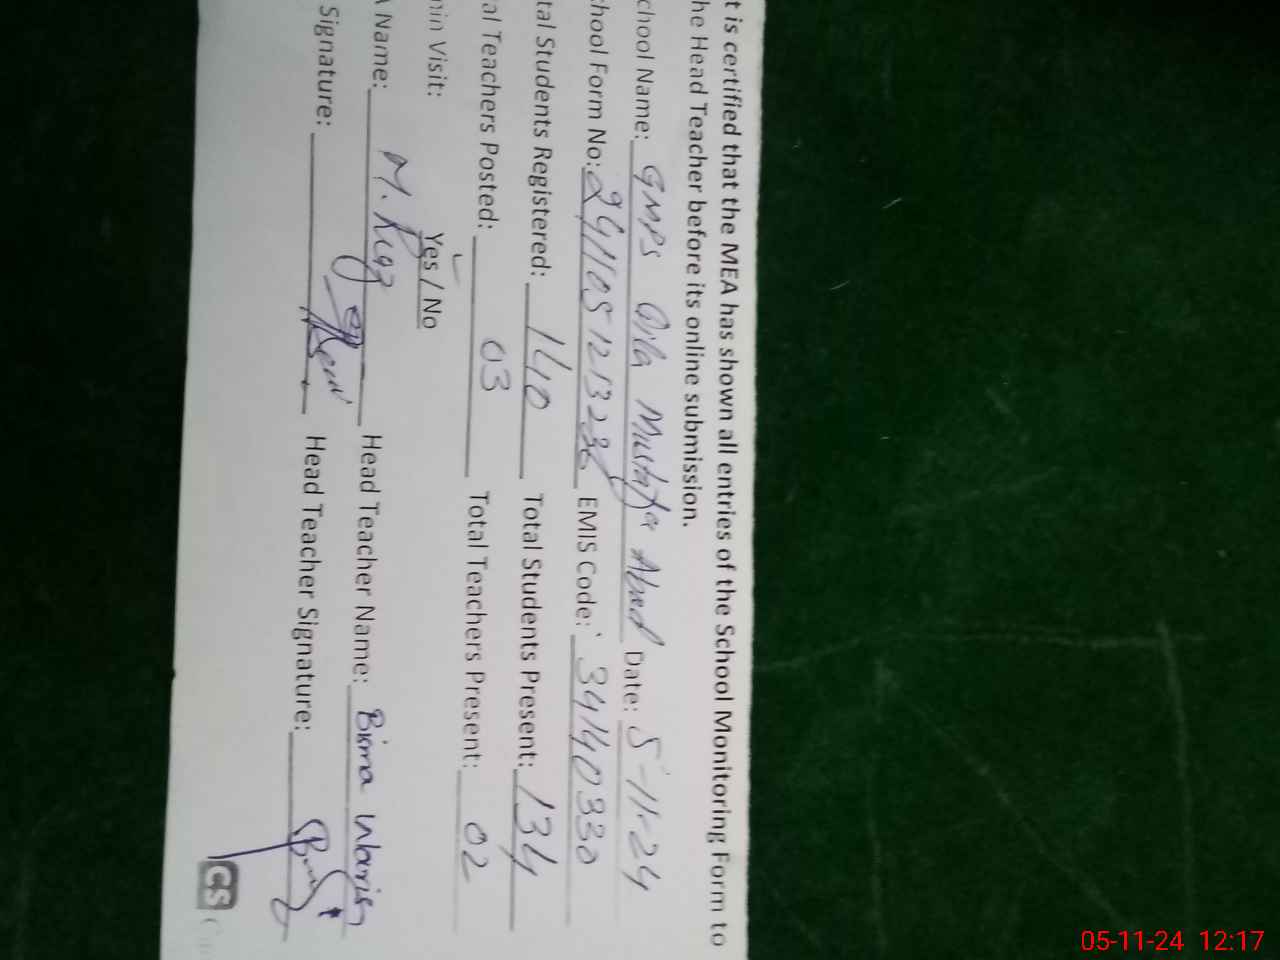 t is certified that the MEA has shown all entries of the School Monitoring Form to
he Head Teacher before its online submission.
chool Name: GMPS Qila Mustafa Abad Date: 5-11-24
chool Form No: EMIS Code: 34140330
tal Students Registered: 140 Total Students Present: 134
al Teachers Posted: 03 Total Teachers Present: 02
min Visit: Yes / No
A Name: M. Head Teacher Name: Bisma Waris
Signature: Head Teacher Signature:
CS
05-11-24 12:17